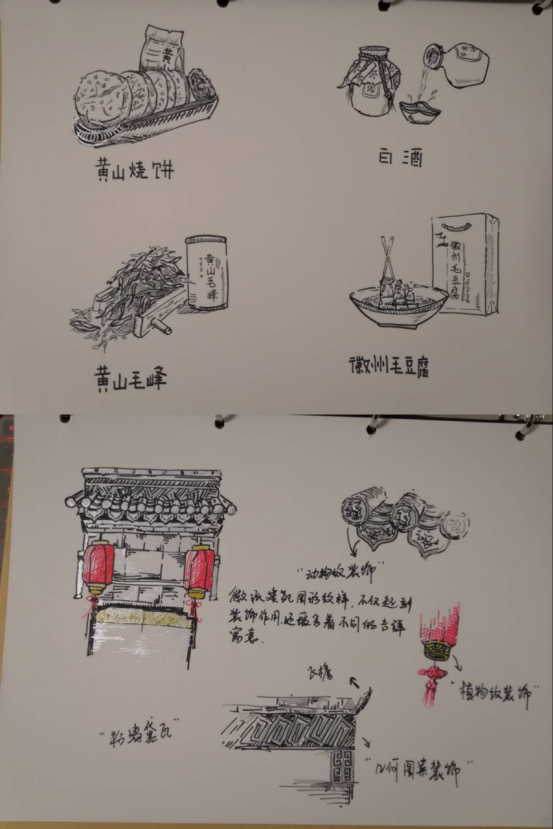 黄山
黄山烧饼
酒
白酒
黄山毛峰
黄山毛峰
徽州毛豆腐
徽州毛豆腐
"动物纹装饰"
徽派建筑图形纹样,不仅起到
装饰作用,还蕴含着不同的吉祥
寓意.
飞檐
"植物纹装饰"
"粉墙黛瓦"
"几何图案装饰"